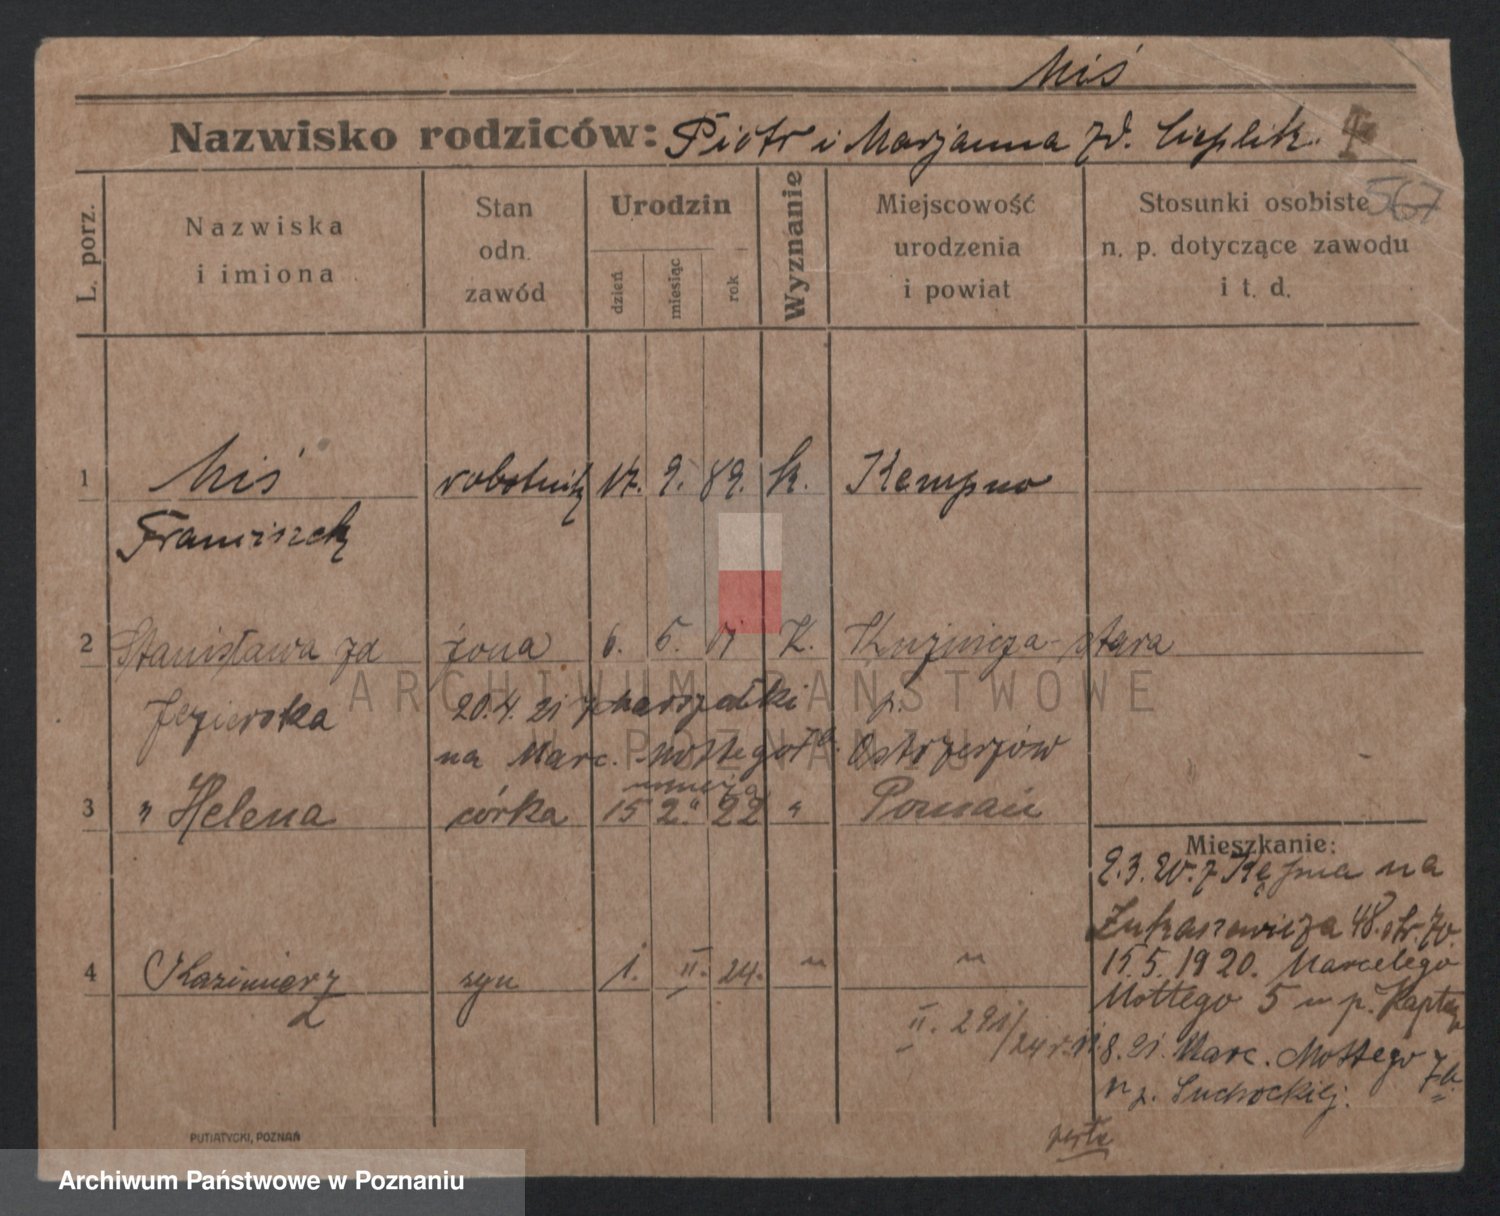 Miś
Nazwisko rodziców: Piotr i Marjanna zd. Cieplik.
567
L. porz.
Nazwiska
i imiona
Stan
odn.
zawód
Urodzin
dzień
miesiąc
rok
Wyznanie
Miejscowość
urodzenia
i powiat
Stosunki osobiste
n. p. dotyczące zawodu
i t. d.
1 Miś robotnik 17. 9. 89. k. Kempno
Franciszek
2 Stanisława zd żona 6. 5. K. Kuźnicza-stara
Jezierska 20.4.21 z p.
na Marc. Mottego 7a. Ostrzeszów
3 " Helena córka 15 2. 22 " Poznań
Mieszkanie:
2.3.20. z Kępna na
Łukaszewicza 48.
15.5.1920. Marcelego
4 Kazimierz syn 1. II. 24. " "
Mottego 5 u p.
II. 291/24
8.21. Marc. Mottego 7a.
u p. Suchockiej.
verte
PUTIATYCKI, POZNAŃ
ARCHIWUM PAŃSTWOWE
W POZNANIU
Archiwum Państwowe w Poznaniu